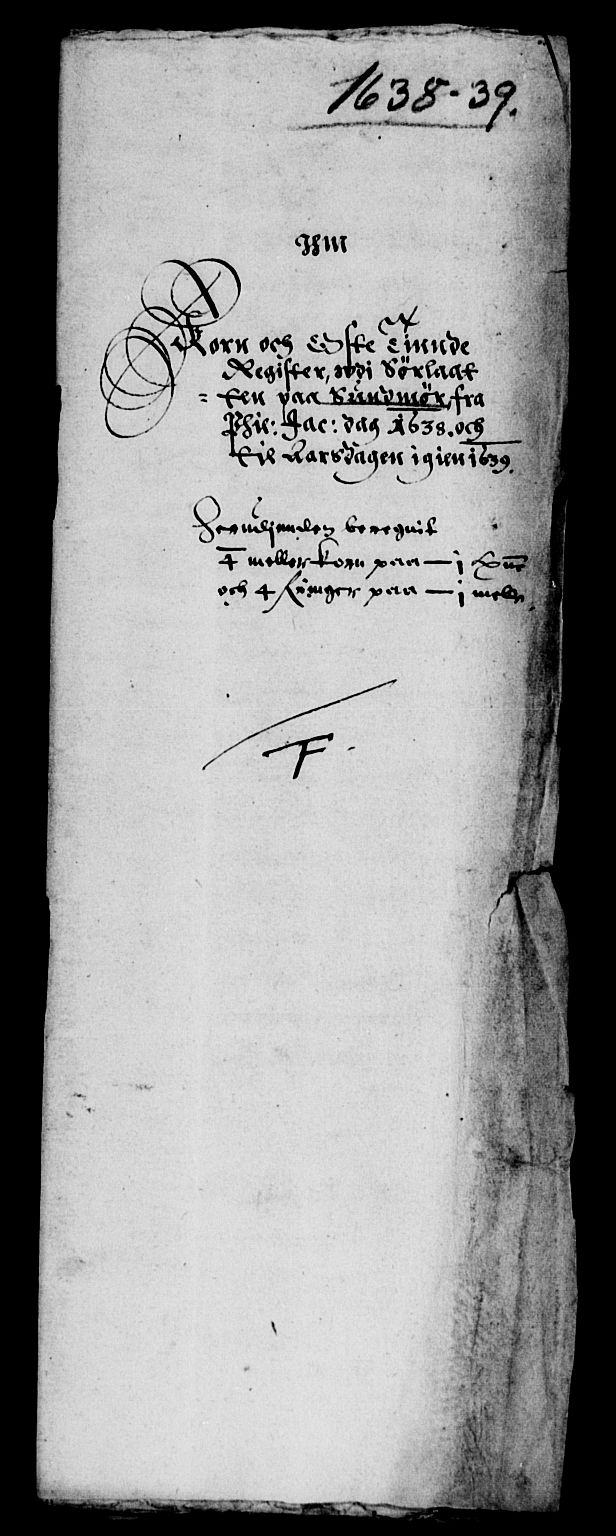 1638-39.
Ihm
Korn och Oste Tiende
Register, udi Sörlagt
= ten paa Sundmör, fra
Phil: Jac: dag A 1638. och
til Aarsdagen igien 1639.
beregnit
4 meller korn paa — j
och 4 paa — j melle
F